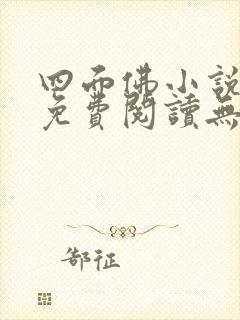 四而佛小說
免費閱讀無
郜征